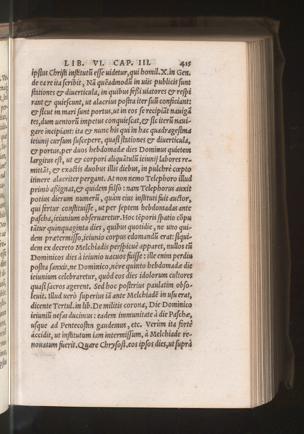 LIB. VI. CAP. III. 415
ipsius Christi institutũ esse videtur, qui homil. X. in Gen.
de ea re ita scribit, Nã quẽadmodũ in uiis publicis sunt
stationes & diuerticula, in quibus fessi uiatores & respi
rant & quiescunt, ut alacrius postea iter suũ conficiant:
& sicut in mari sunt portus, ut in eos se recipiãt nauigã
tes, dum uentorũ impetus conquiescat, & sic iterũ naui-
gare incipiant: ita & nunc his qui in hac quadragesima
ieiunij cursum suscepere, quasi stationes & diuerticula,
& portus, per duos hebdomadæ dies Dominus quietem
largitus est, ut & corpori aliquãtulũ ieiunij labores re-
mittãt, & exactis duobus illis diebus, in pulchrè cœpto
itinere alacriter pergant. At non nemo Telesphoro illud
primò assignat, & quidem falsò: nam Telesphorus auxit
potius dierum numerũ, quàm eius instituti fuit auctor,
qui fertur constituisse, ut per septem hebdomadas ante
pascha, ieiunium obseruaretur. Hoc tẽporis spatio cõpu
tãtur quinquaginta dies, quibus quotidie, ne uno qui-
dem prætermisso, ieiunio corpus edomandũ erat: siqui-
dem ex decreto Melchiadis perspicuè apparet, nullos tũ
Dominicos dies à ieiunio uacuos fuisse: ille enim perdiu
postea sanxit, ne Dominico, néve quinto hebdomadæ die
ieiunium celebraretur, quòd eos dies idolorum cultores
quasi sacros agerent. Sed hoc posterius paulatim obso-
leuit. Illud uerò superius iã ante Melchiadẽ in usu erat,
dicente Tertul. in lib. De militis corona, Die Dominico
ieiuniũ nefas ducimus: eadem immunitate à die Paschæ,
usque ad Pentecosten gaudemus, etc. Verùm ita fortè
accidit, ut institutum iam intermissum, à Melchiade re-
nouatum fuerit. Quare Chrysost. eos ipsos dies, ut suprà